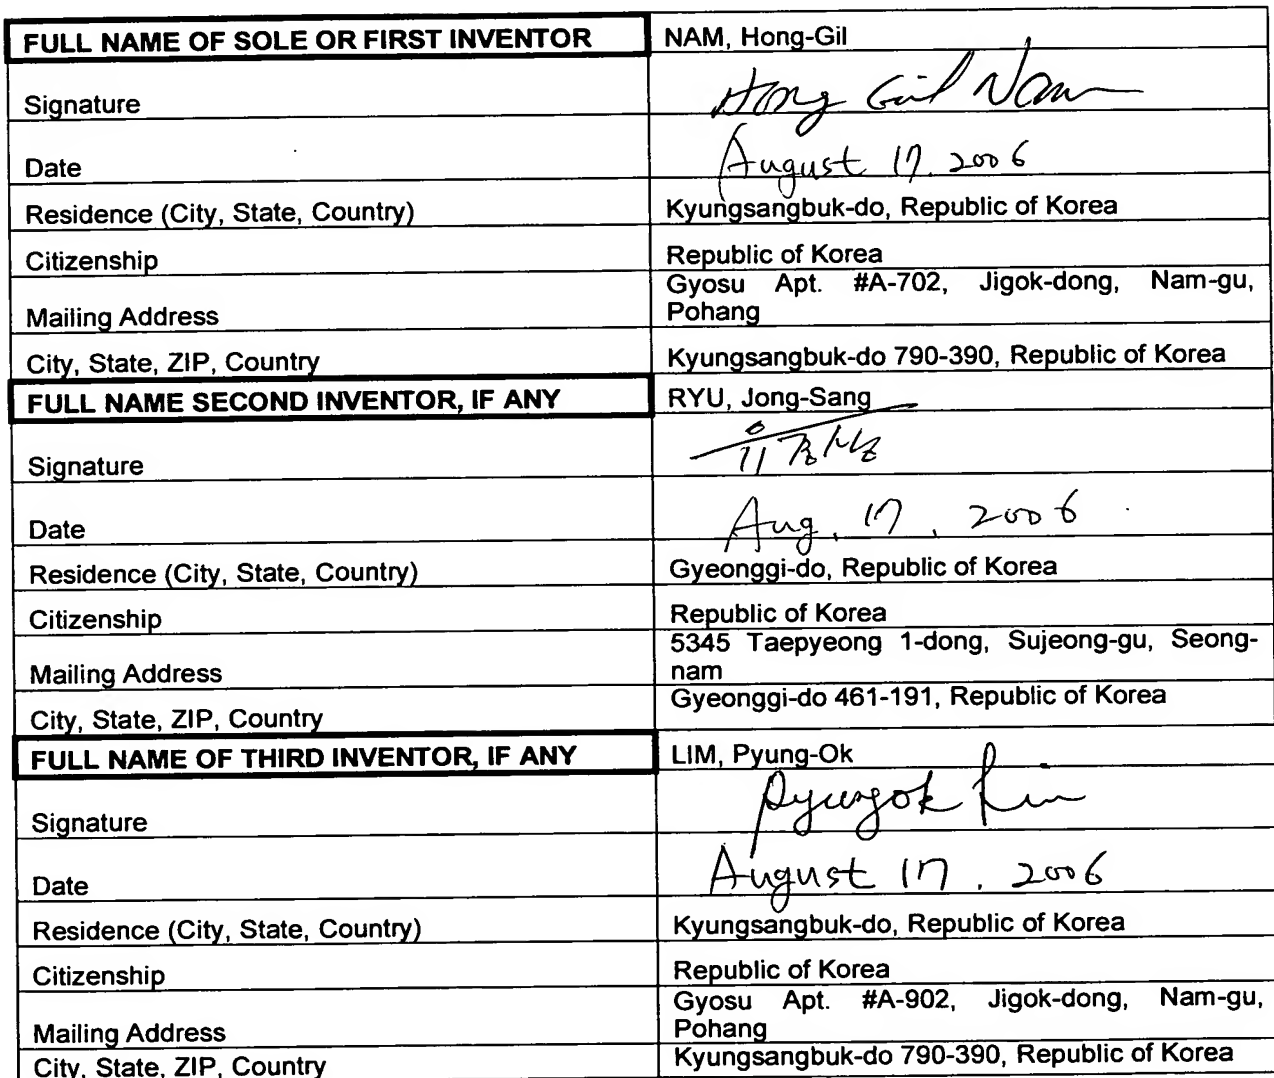 FULL NAME OF SOLE OR FIRST INVENTOR NAM, Hong-Gil
Signature Hong Gil Nam
Date August 17. 2006
Residence (City, State, Country) Kyungsangbuk-do, Republic of Korea
Citizenship Republic of Korea
Mailing Address Gyosu Apt. #A-702, Jigok-dong, Nam-gu,
Pohang
City, State, ZIP, Country Kyungsangbuk-do 790-390, Republic of Korea
FULL NAME SECOND INVENTOR, IF ANY RYU, Jong-Sang
Signature 유종상
Date Aug, 17, 2006
Residence (City, State, Country) Gyeonggi-do, Republic of Korea
Citizenship Republic of Korea
Mailing Address 5345 Taepyeong 1-dong, Sujeong-gu, Seong-
nam
City, State, ZIP, Country Gyeonggi-do 461-191, Republic of Korea
FULL NAME OF THIRD INVENTOR, IF ANY LIM, Pyung-Ok
Signature Pyungok Lim
Date August 17. 2006
Residence (City, State, Country) Kyungsangbuk-do, Republic of Korea
Citizenship Republic of Korea
Mailing Address Gyosu Apt. #A-902, Jigok-dong, Nam-gu,
Pohang
City, State, ZIP, Country Kyungsangbuk-do 790-390, Republic of Korea